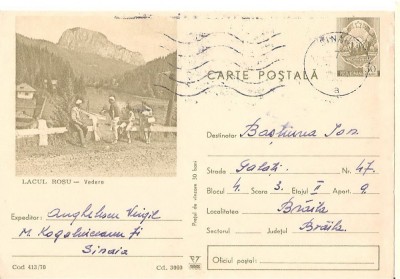 SINAIA
CARTE POSTALĂ
Destinatar Baștiurea Ion
Strada Galați Nr. 47.
Blocul 4. Scara 3. Etajul II Apart. 9
Localitatea Brăila
Sectorul Județul Brăila.
Oficiul poștal:
Prețul de vînzare 30 bani
LACUL ROȘU — Vedere
Expeditor: Anghelescu Virgil
M. Kogălniceanu
Sinaia
Cod 413/70
Cd. 3969